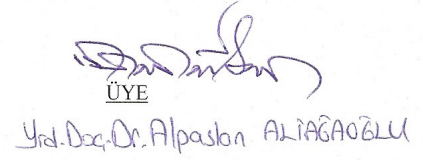 ÜYE
Yrd.Doç.Dr. Alpaslan ALİAĞAOĞLU